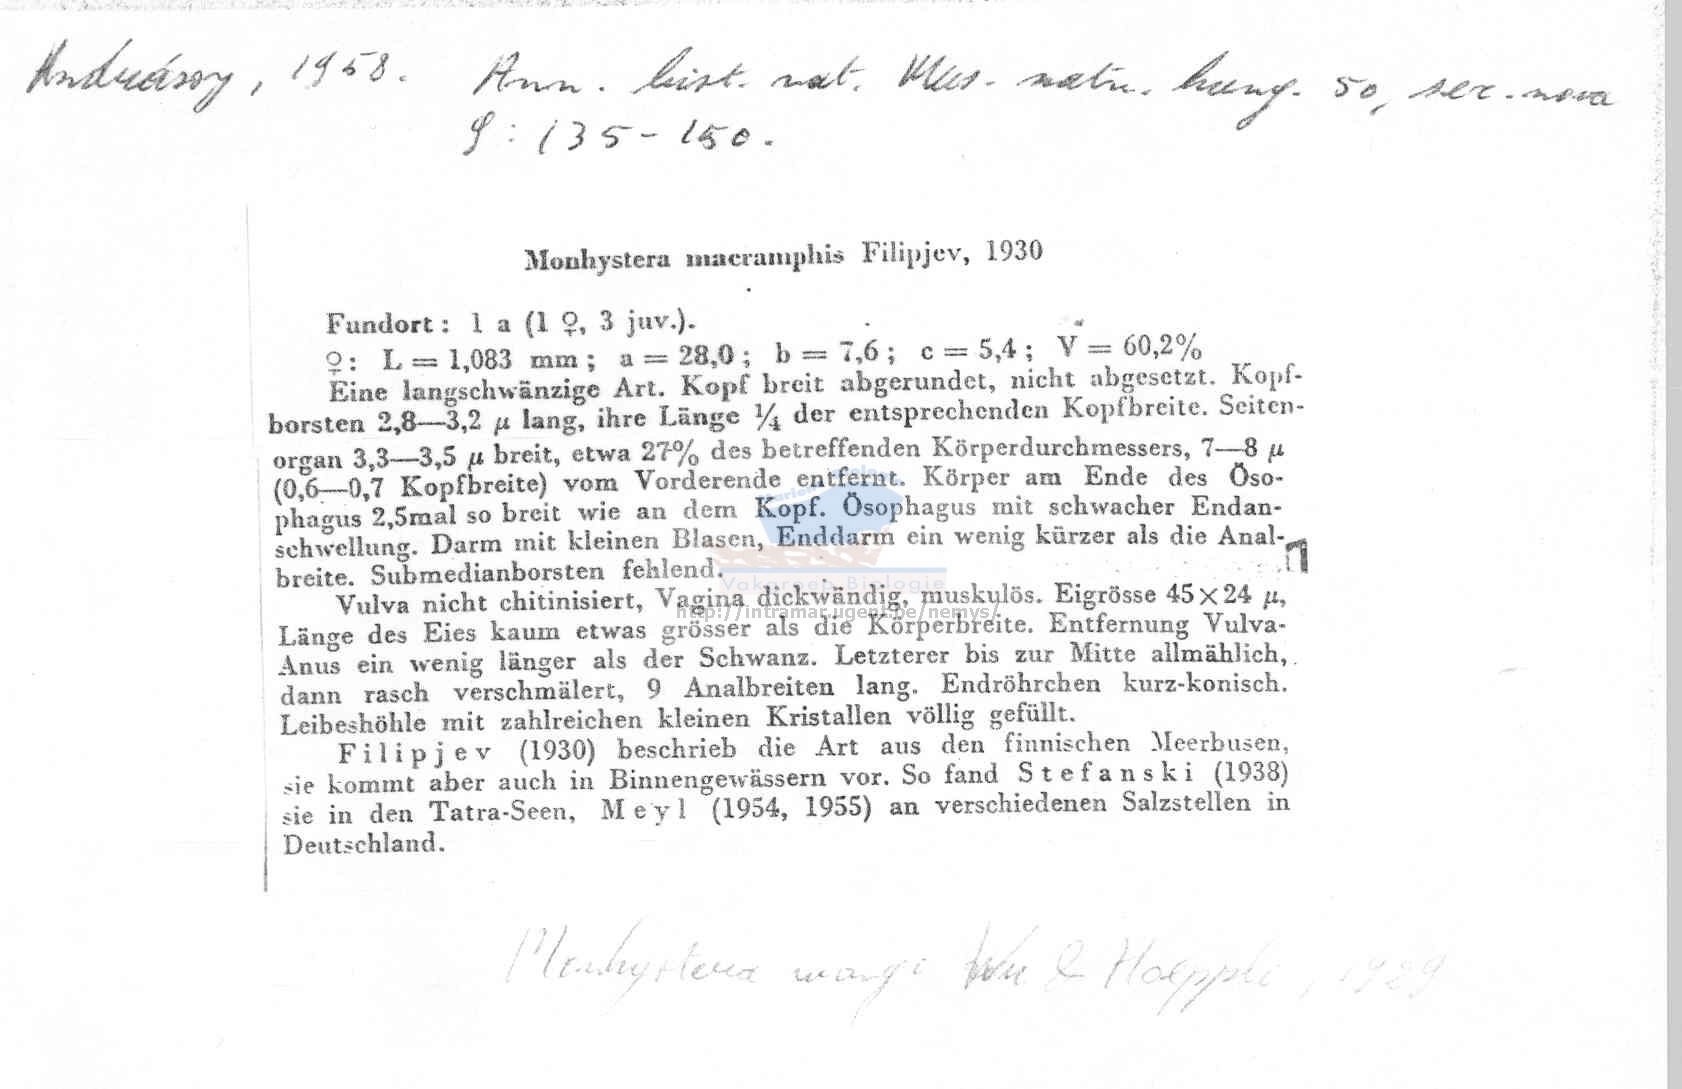 Andrássy, 1958. Ann. hist. nat. Mus. natn. hung. 50, ser. nova
P: 135-150.
Monhystera macramphis Filipjev, 1930
Fundort: 1 a (1 ♀, 3 juv.).
♀: L = 1,083 mm; a = 28,0; b = 7,6; c = 5,4; V = 60,2%
Eine langschwänzige Art. Kopf breit abgerundet, nicht abgesetzt. Kopf-
borsten 2,8—3,2 μ lang, ihre Länge ¼ der entsprechenden Kopfbreite. Seiten-
organ 3,3—3,5 μ breit, etwa 27% des betreffenden Körperdurchmessers, 7—8 μ
(0,6—0,7 Kopfbreite) vom Vorderende entfernt. Körper am Ende des Öso-
phagus 2,5mal so breit wie an dem Kopf. Ösophagus mit schwacher Endan-
schwellung. Darm mit kleinen Blasen, Enddarm ein wenig kürzer als die Anal-
breite. Submedianborsten fehlend.
Vakgroep Biologie
Vulva nicht chitinisiert, Vagina dickwändig, muskulös. Eigrösse 45×24 μ,
http://intramar.ugent.be/nemys/
Länge des Eies kaum etwas grösser als die Körperbreite. Entfernung Vulva-
Anus ein wenig länger als der Schwanz. Letzterer bis zur Mitte allmählich,
dann rasch verschmälert, 9 Analbreiten lang. Endröhrchen kurz-konisch.
Leibeshöhle mit zahlreichen kleinen Kristallen völlig gefüllt.
Filipjev (1930) beschrieb die Art aus den finnischen Meerbusen,
sie kommt aber auch in Binnengewässern vor. So fand Stefanski (1938)
sie in den Tatra-Seen, Meyl (1954, 1955) an verschiedenen Salzstellen in
Deutschland.
Monhystera wangi & Hoeppli, 1929